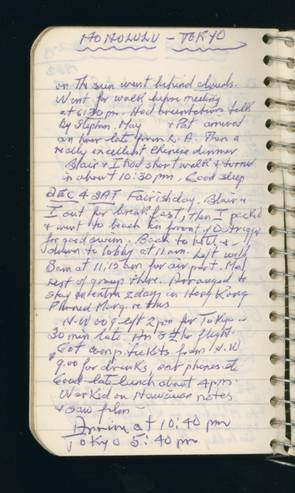 HONOLULU – TOKYO
or The sun went behind clouds.
Went for walk before meeting
at 6:30 pm. Had orientation talk
by Stephen, May & Pat arrived
an hour late from L.A. Then a
really excellent Chinese dinner
Blair & I had short walk & turned
in about 10:30 pm. Good sleep
DEC 4 SAT Fairish day. Blair &
I out for breakfast, then I packed
& went to beach in front of Outrigger
for good swim. Back to hotel &
down to lobby at 11 am. Left with
Ben at 11,15 am for air port. Met
rest of group there. Arranged to
stay an extra 2 days in Hong Kong
Phoned Marg. re this
N.W 009 left 2 pm for Tokyo –
30 min late. An 8½ hr flight
Got comp. tickets from N.W
for drinks, ear phones etc
Good late lunch about 4 pm.
Worked on Hawaiian notes
& saw film –
Arrive at 10:40 pm
Tokyo 5:40 pm